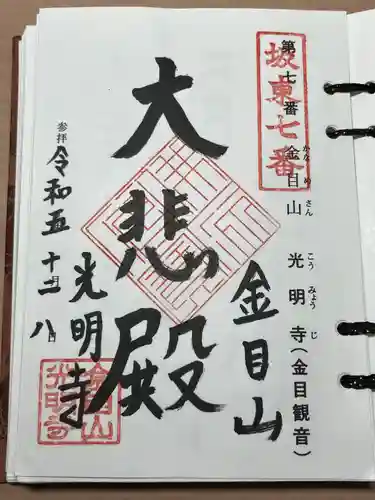 坂東七番
第七番 金目山 光明寺(金目観音)
かなめさん こうみょうじ
金目山
大悲殿
光明寺
参拝 令和五 十二月 八日
金目山
光明寺